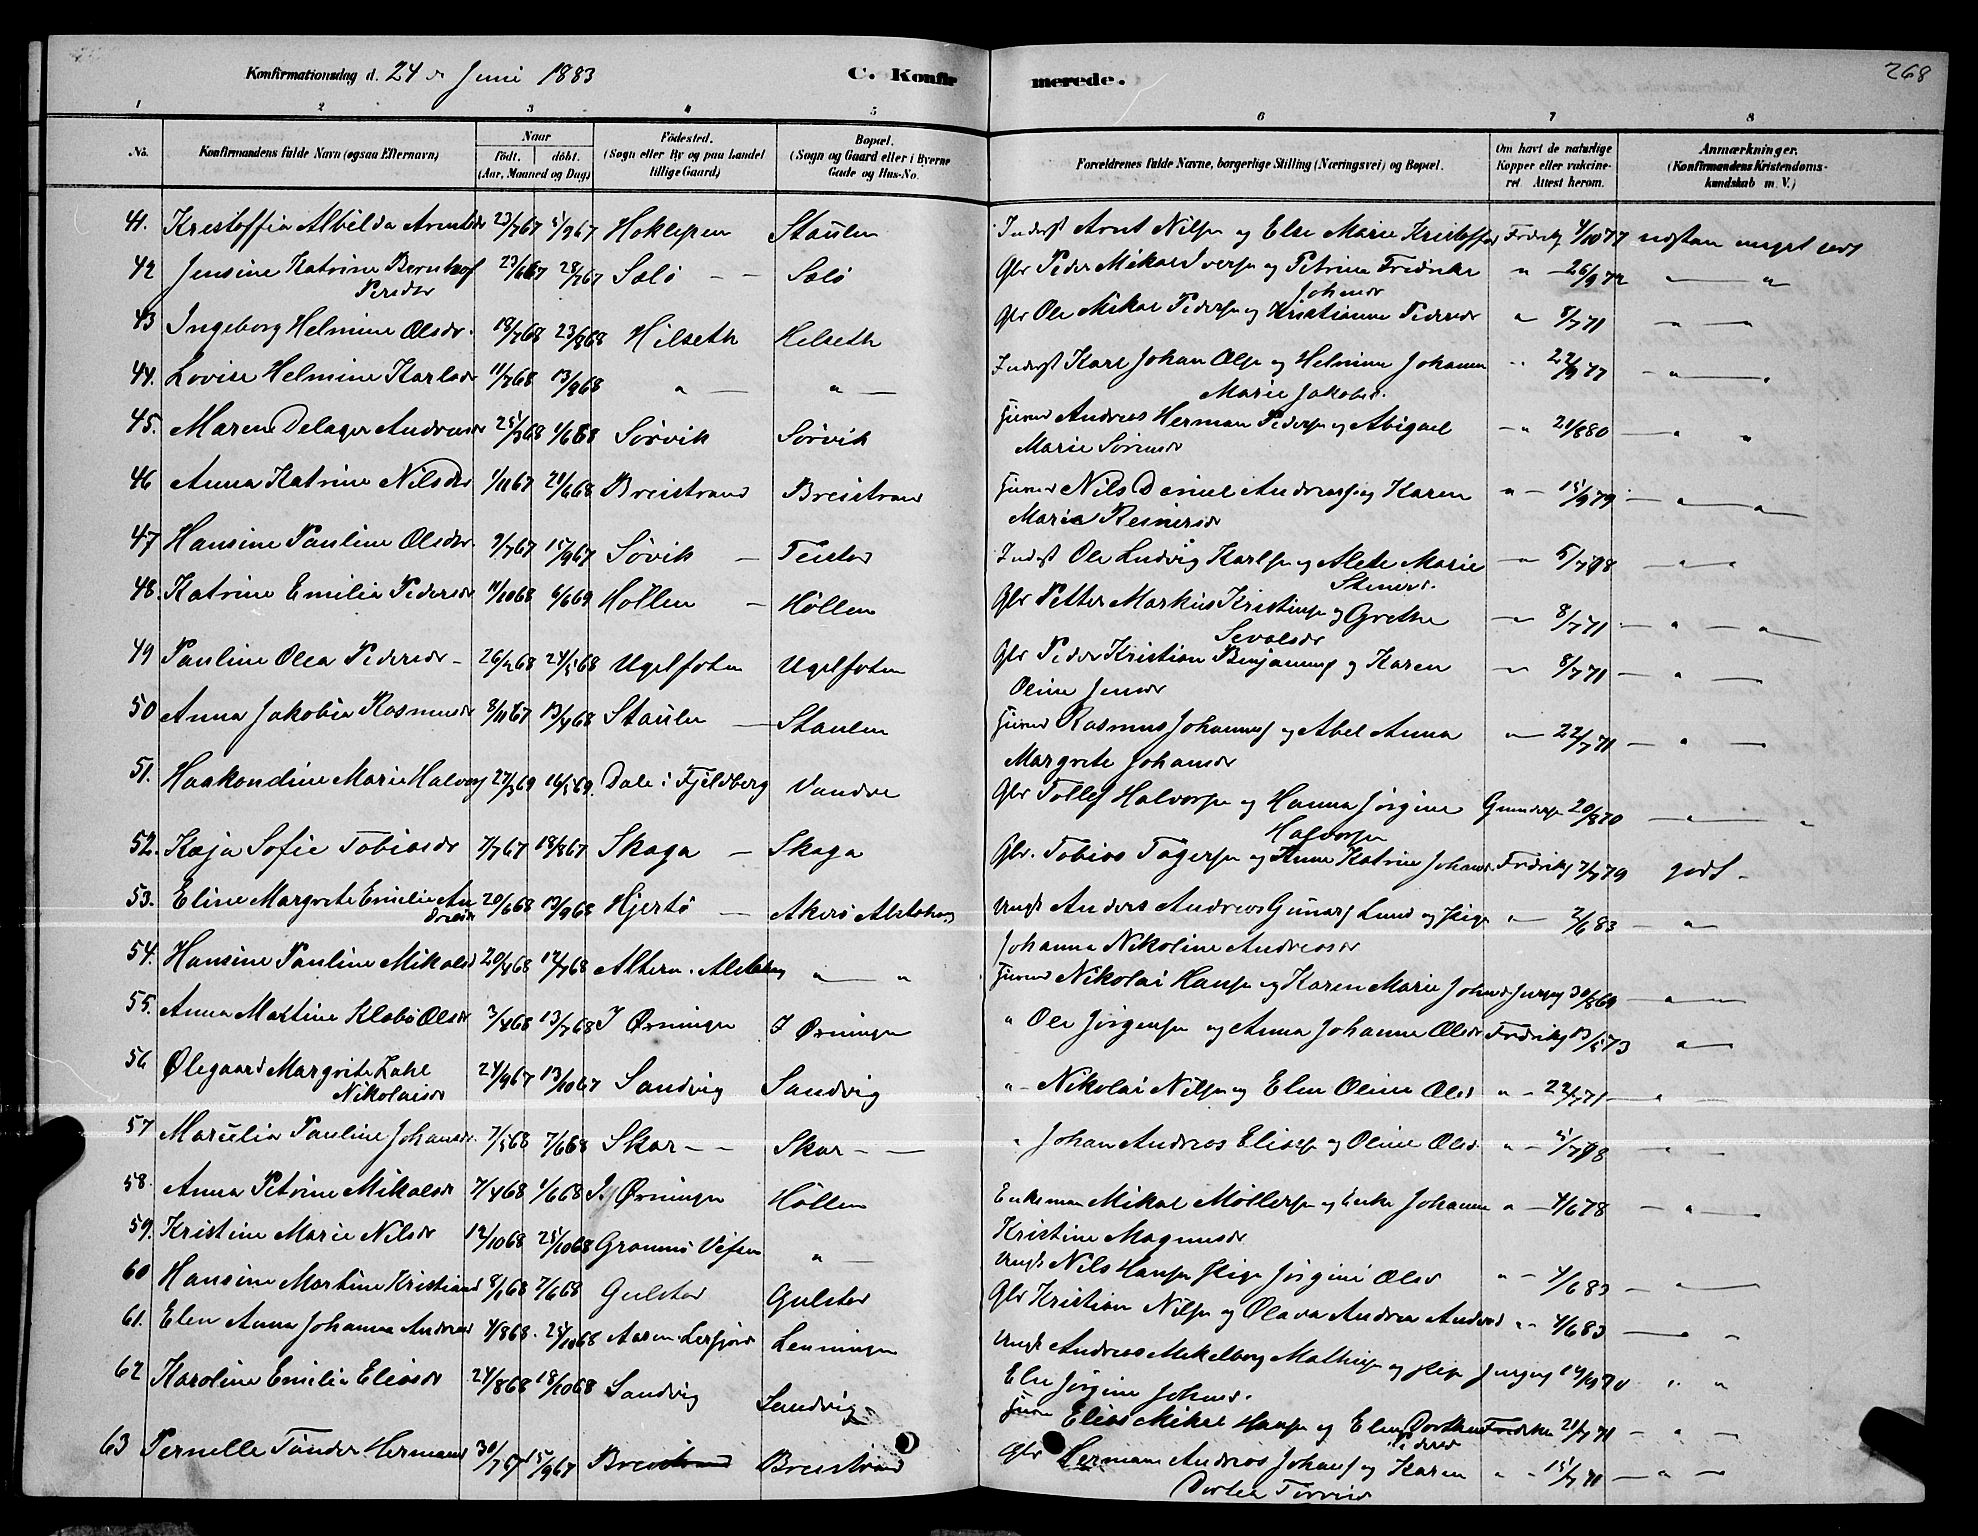 Konfirmationsdag d. 24 de Juni 1883
C. Konfirmerede.
268
1 2 3 4 5 6 7 8
No.
Konfirmandens fulde Navn (ogsaa Efternavn)
Naar
födt. döbt.
(Aar, Maaned og Dag)
Födested.
(Sogn eller By og paa Landet tillige Gaard)
Bopæl.
(Sogn og Gaard eller i Byerne Gade og Hus-No.
Forældrenes fulde Navne, borgerlige Stilling (Næringsvei) og Bopæl.
Om havt de naturlige Kopper eller vakcineret. Attest herom.
Anmærkninger.
(Konfirmandens Kristendomskundskab m. V.)
41. Kristoffia Albilda Arntsdr 23/7 67 Hoklepen Staulen Inderst Arnt Nilsen og Else Marie Kristoffer Fredrik 4/10 77 næsten meget godt
42 Jensine Katrine Bernhof Pedersdr 23/6 67 28/7 67 Salö Salö Gbr Peder Mikal Iversen og Petrine Fredrikke Johansdr 26/9 72
43 Ingeborg Helmine Olsdr. 18/7 68 23/8 68 Hilseth Helseth Gbr Ole Mikal Pedersen og Kristianna Pedersdr 8/7 71
44. Lovise Helmine Karlsdr 11/7 68 13/9 68 Inderst Karl Johan Olsen og Helmine Johanna Marie Jakobsd. 22/9 77
45. Maren Delager Andreasdr 25/3 68 1/6 68 Sörvik Sörvik Andreas Herman Pedersen og Abigael Marie Sörensdr 21/8 80
46 Anna Katrine Nilsdtr 1/11 67 21/6 68 Breistrand Breistrand Nils Daniel Andreasen og Karen Maria Reinersdr 15/9 79
47 Hansine Pauline Olsdtr. 9/7 67 15/9 67 Sövik Feistor Inderst Ole Ludvig Karlsen og Alete Marie Steinersd. 5/7 78
48. Katrine Emilie Pedersdr 11/10 68 6/6 69 Höllen Höllen Gbr Petter Markus Kristensen og Grethe Sevalsdr 8/7 71
49 Pauline Olea Pedersdr 26/2 68 24/5 68 Ugelfoten Ugelfoten Gbr Peder Kristian Benjamins og Karen Oline Jensdr 8/7 71
50 Anna Jakobia Rasmusdr 8/11 67 13/4 68 Staulen Staulen Rasmus Johannes og Abel Anna Margrete Johansdr 22/7 71
51. Haakondine Marie Halvors 27/3 69 16/5 69. Dale i Fjeldberg Vandve Gbr Tollef Halvorsen og Hanna Jörgine Halvorsen Gundersen 20/8 70
52. Kaja Sofie Tobiasdr 7/7 67 18/8 67 Skaga Skaga Gbr. Tobias Tögersen og Anne Katrine Johansd. Fredrik 7/7 79 godt
53. Eline Margrete Emilie Andreasdr 20/6 68 13/9 68 Hjertö Akerö Alstahaug Ungk Anders Andreas Gunars Lund og Pige Johanna Nikoline Andreasdr 2/6 83
54. Hansine Pauline Mikalsd 20/4 68 12/7 68 Altern. Alstahaug Nikolai Hansen og Karen Marie Johansd Jursen 30/8 69
55. Anna Martine Klobö Olsdr 3/4 68 13/7 68 I Örningen I Örningen Ole Jörgensen og Anna Johanna Olsdr Fredriks 13/5 73
56 Ölegaard Margrete Zahl Nikolaisdr 24/9 67 13/10 67 Sandvig Sandvig Nikolai Nilsen og Elen Oline Olsd 22/7 71
57 Marselia Pauline Johansdr. 7/5 68 7/6 68 Skar Skar Johan Andreas Eliasen og Oline Olsd 5/7 78
58. Anna Petrine Mikalsdr 7/4 68 1/6 68 I Örningen Höllen Enkeman Mikal Möllersen og Enke Johanna Kristine Magnusdr 4/6 78
59. Kristine Marie Nilsdr 12/10 68 25/10 68 Granmö Vefsen Ungk Nils Hansen Pige Jörgine Olsd 4/6 83
60 Hansine Martine Kristiansd 8/1 68 7/6 68 Gulstad Gulstad Gbr Kristian Nilsen og Olava Andrea Andersd 4/6 83
61. Elen Anna Johanna Andreasd 4/8 68. 25/10 68 Aaren. Leirfjord Leinningen Ungk Andreas Mekelborg Mathisen og Pige Else Jörgine Johnsd. Jursen 70
62 Karoline Emilie Eliasdr 24/8 68 18/10 68 Sandvig Sandvig Elias Mikal Hansen og Elen Dorthea Pedersd Fredriks 21/7 71
63 Pernelle Tönder Hermansd 30/7 67 15/9 67 Breistrand Breistrand Gbr Herman Andreas Johans og Karen Dortea Torrisd 15/7 71